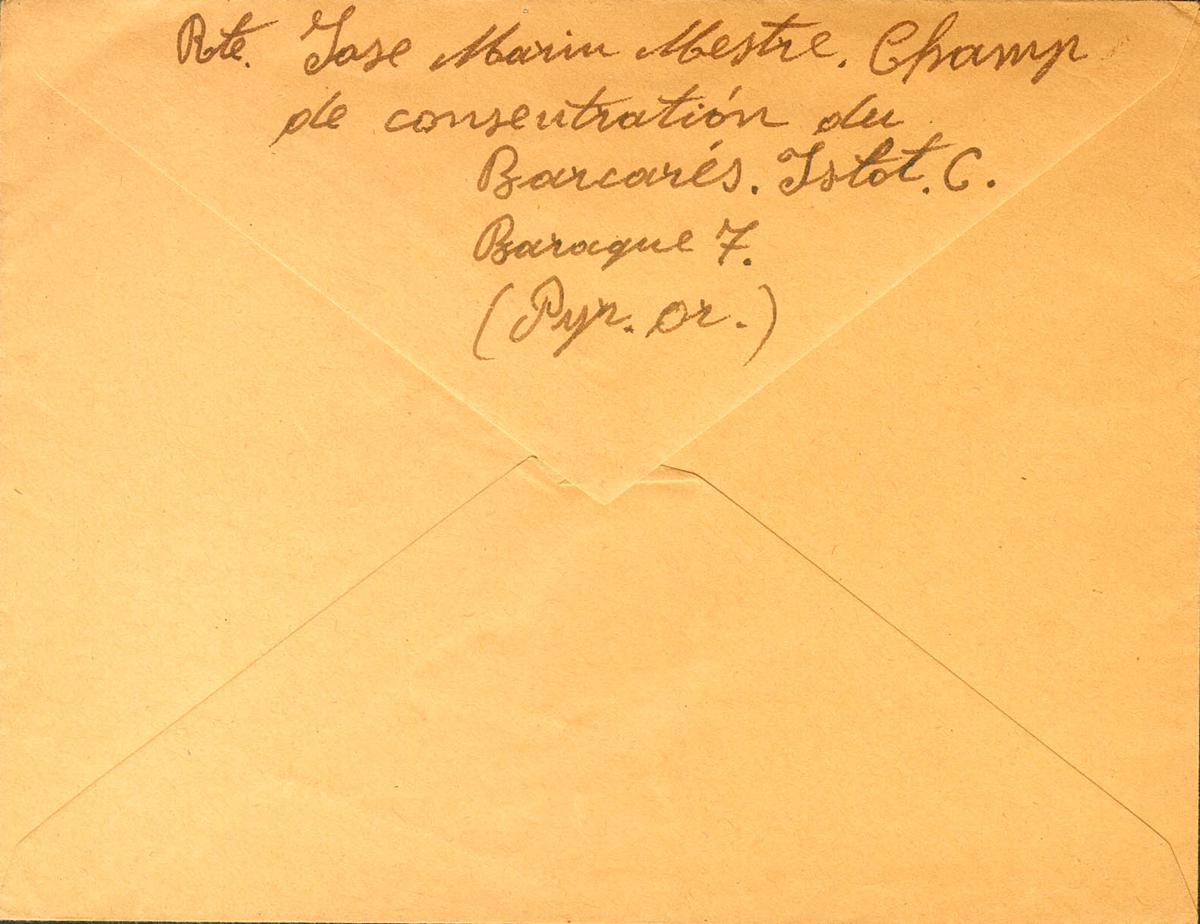 Rte. Jose Marin Mestre. Champ
de consentratión du
Barcarés. Istot. C.
Baraque 7.
(Pyr. or.)